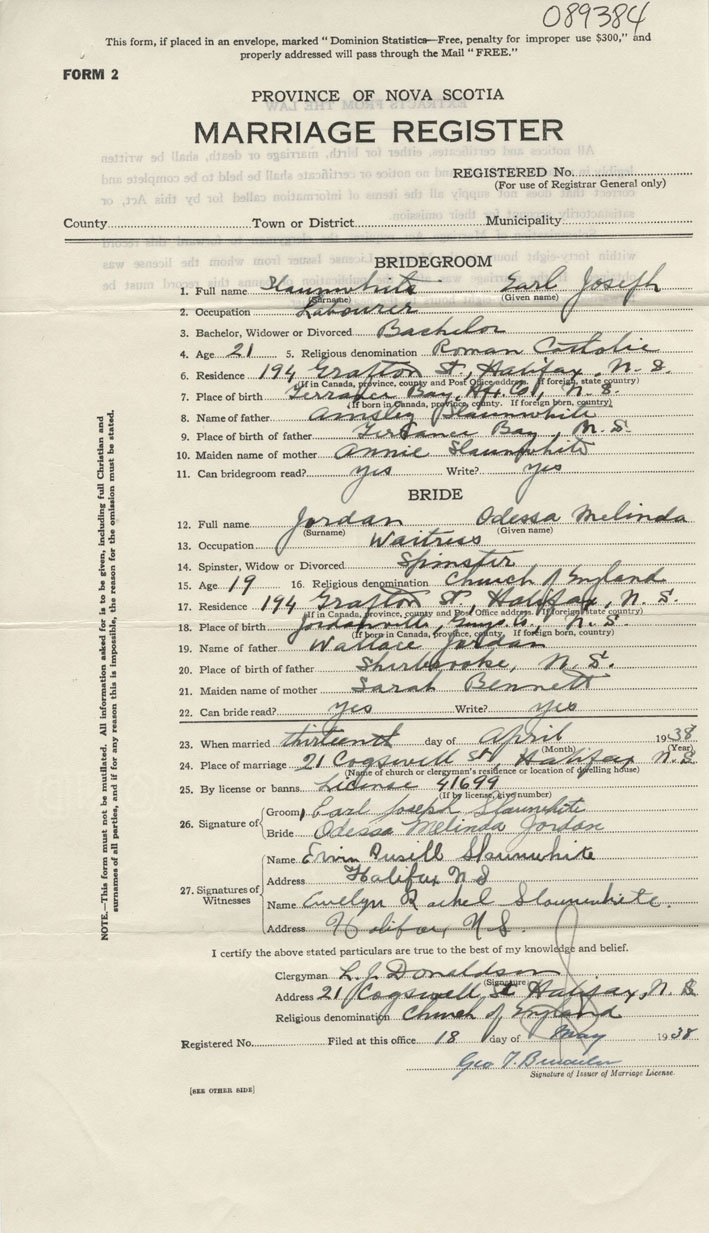 089384
This form, if placed in an envelope, marked "Dominion Statistics—Free, penalty for improper use $300," and
properly addressed will pass through the Mail "FREE."
FORM 2
PROVINCE OF NOVA SCOTIA
MARRIAGE REGISTER
REGISTERED No.
(For use of Registrar General only)
County Town or District Municipality
BRIDEGROOM
1. Full name Slaunwhite Earl Joseph
(Surname) (Given name)
2. Occupation Labourer
3. Bachelor, Widower or Divorced Bachelor
4. Age 21 5. Religious denomination Roman Catholic
6. Residence 194 Grafton St, Halifax, N. S.
(If in Canada, province, county and Post Office address. If foreign, state country)
7. Place of birth Terrance Bay, Hfx Co, N. S.
(If born in Canada, province, county. If foreign born, country)
8. Name of father Ainsley Slaunwhite
9. Place of birth of father Terrance Bay, N. S
10. Maiden name of mother Annie Slaunwhite
11. Can bridegroom read? yes Write? yes
BRIDE
12. Full name Jordan Odessa Melinda
(Surname) (Given name)
13. Occupation Waitress
14. Spinster, Widow or Divorced Spinster
15. Age 19 16. Religious denomination Church of England
17. Residence 194 Grafton St, Halifax, N. S.
(If in Canada, province, county and Post Office address. If foreign, state country)
18. Place of birth Jordanville, Guys. Co., N. S.
(If born in Canada, province, county. If foreign born, country)
19. Name of father Wallace Jordan
20. Place of birth of father Sherbrooke, N. S.
21. Maiden name of mother Sarah Bennett
22. Can bride read? yes Write? yes
23. When married thirteenth day of April 1938
(Month) (Year)
24. Place of marriage 21 Cogswell St, Halifax N. S
(Name of church or clergyman's residence or location of dwelling house)
25. By license or banns License 41699
(If by license, give number)
26. Signature of Groom Earl Joseph Slaunwhite
Bride Odessa Melinda Jordan
27. Signatures of Witnesses
Name Ervin Slaunwhite
Address Halifax N S
Name Evelyn Rachel Slaunwhite.
Address Halifax, N. S.
I certify the above stated particulars are true to the best of my knowledge and belief.
Clergyman L. J. Donaldson
(Signature)
Address 21 Cogswell St Halifax, N. S
Religious denomination Church of England
Registered No. Filed at this office 18 day of May 1938
Geo T.
Signature of Issuer of Marriage License.
[SEE OTHER SIDE]
NOTE.—This form must not be mutilated. All information asked for is to be given, including full Christian and
surnames of all parties, and if for any reason this is impossible, the reason for the omission must be stated.